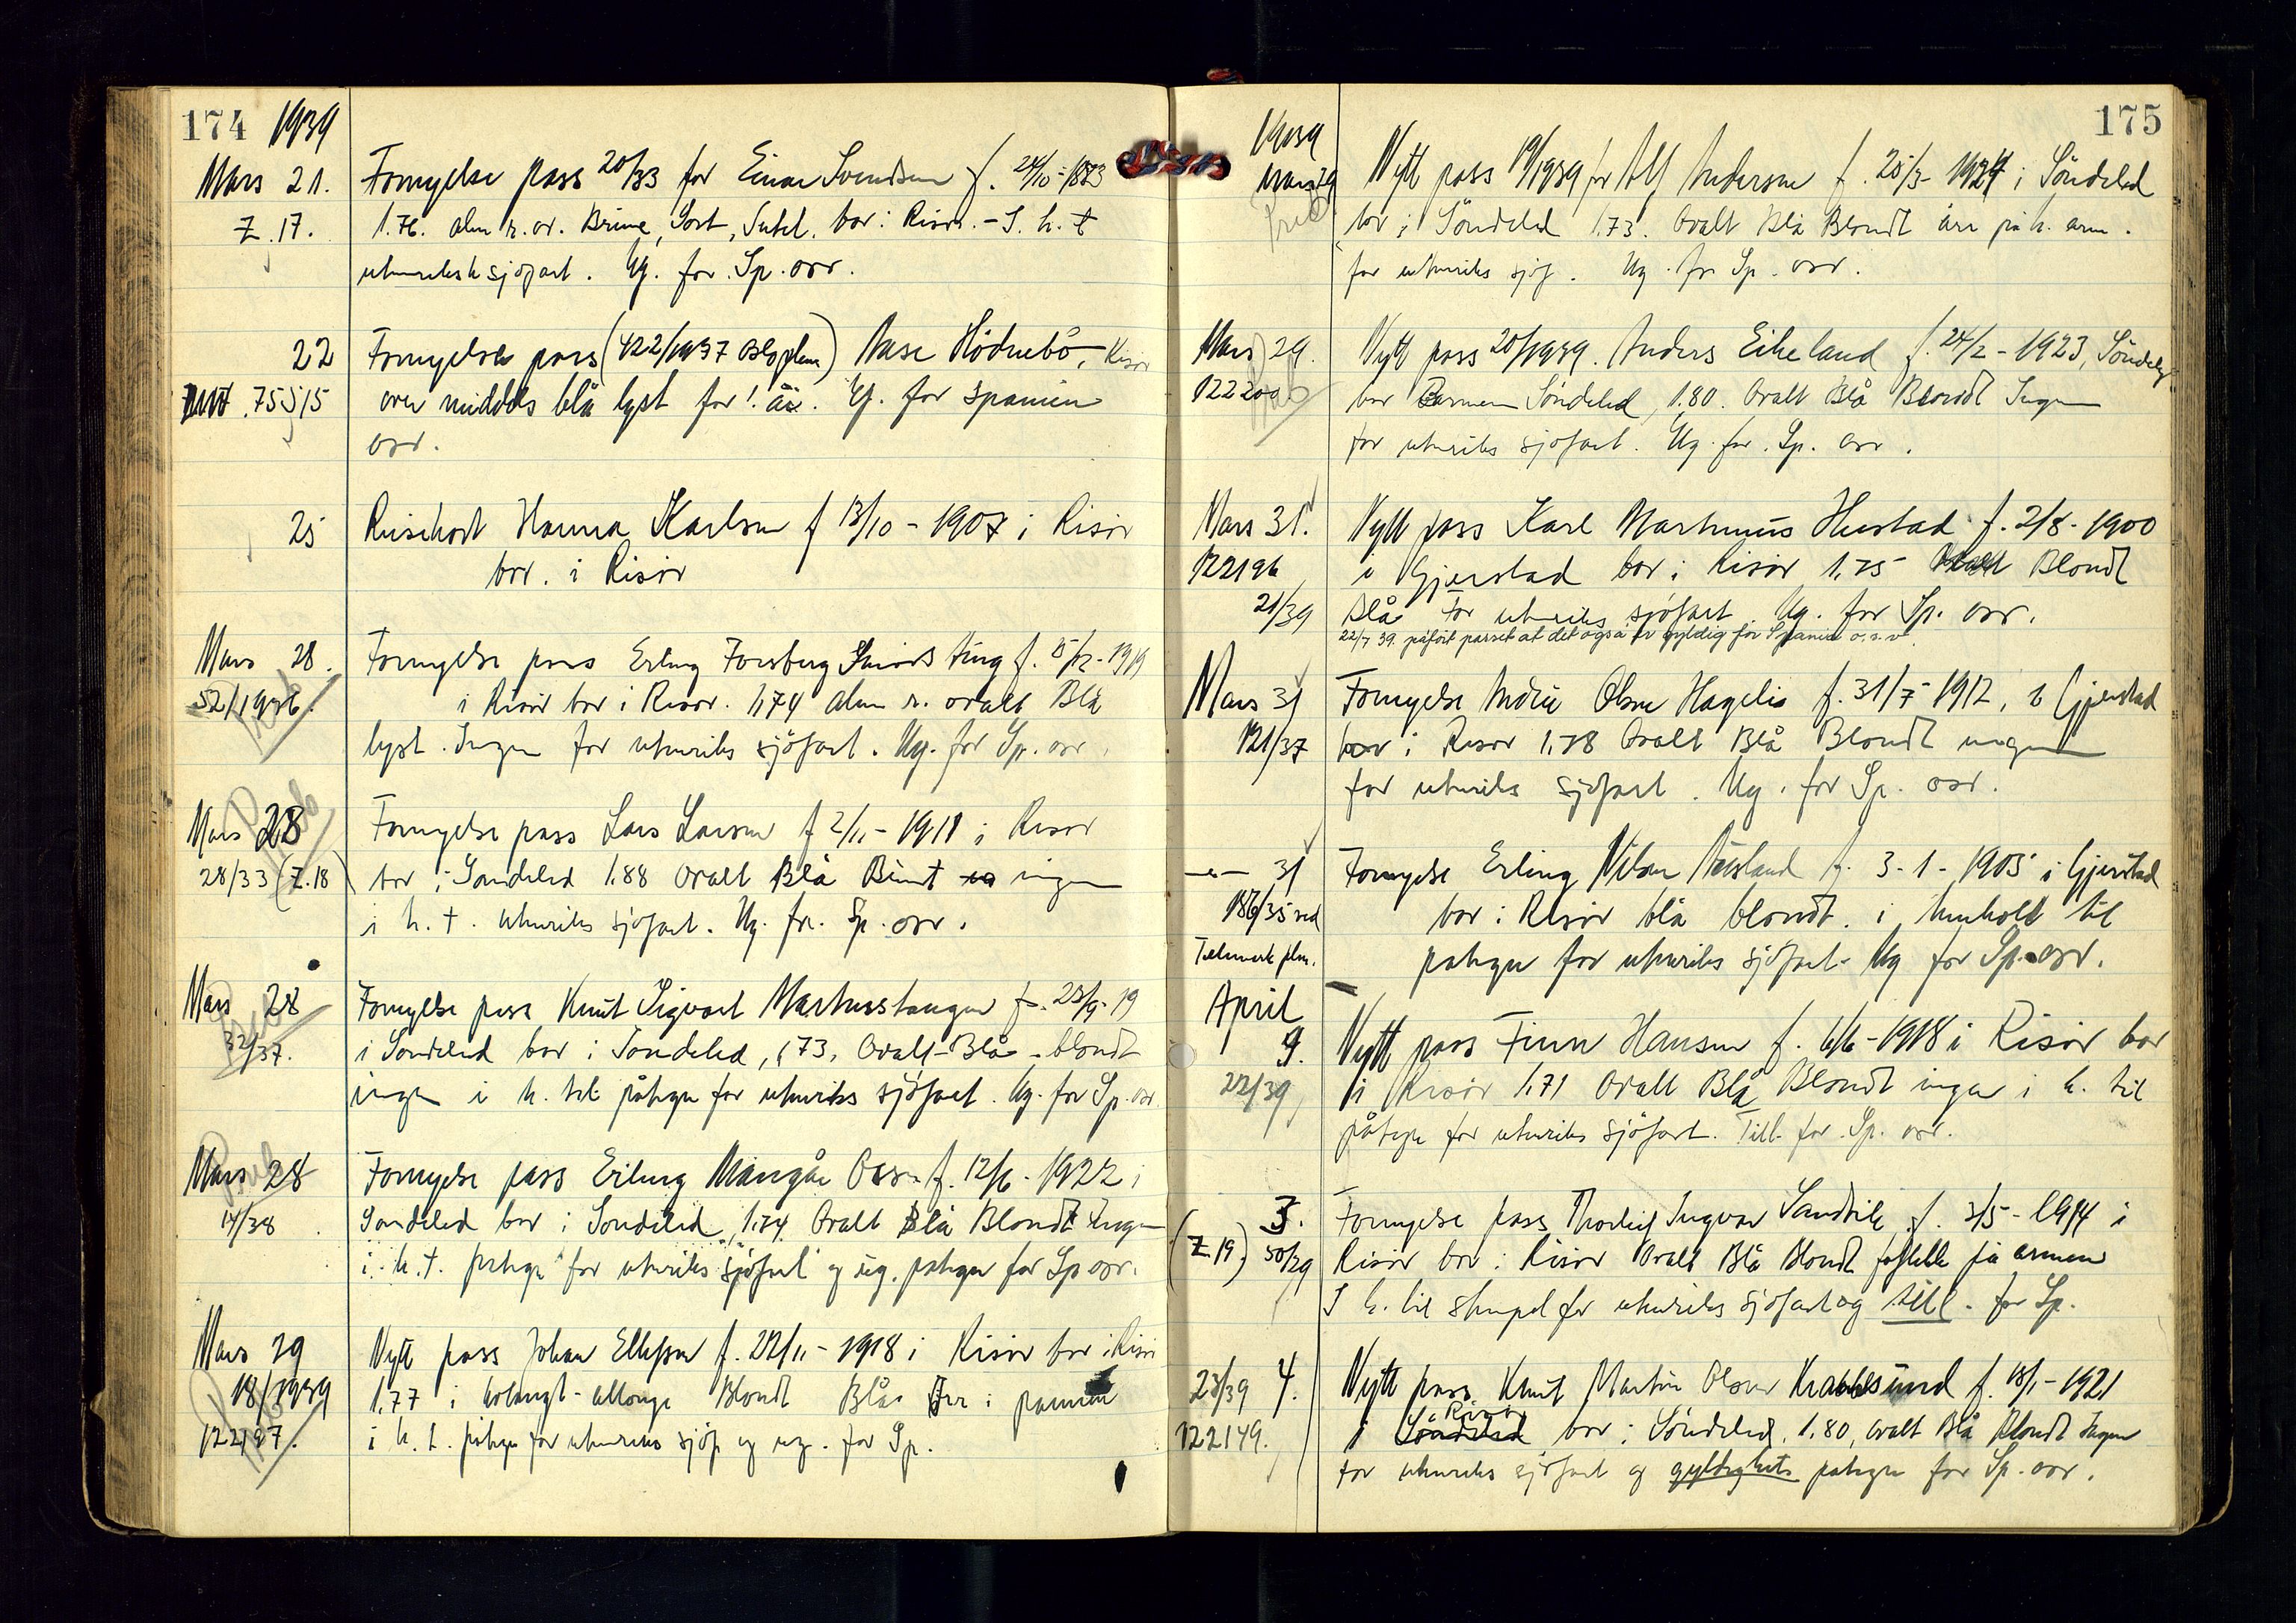 174 1939
Mars 21. Fornyelse pass 20/33 for Einar Svendsen f. 24/10-1883
Z. 17. 1.76. alm r. ov. Brune, Sort, bor i Risør. - I. h. t
utenriksk sjöfart. Ug. for Sp. osv.
22 Fornyelse pass (422/1937 Oslo plkm) Aase Hödnebö, Risør
7515 over middels blå lyst for 1 år. Ug. for Spanien
osv.
25 Reisekort Hanna Karlsen f 13/10 - 1907 i Risör
bor. i Risör
Mars 28. Fornyelse pass Erling Forsberg f. 5/12-1919
52/1936. i Risör bor i Risør. 1,74 alm r. ovalt Blå
lyst. Ingen for utenriks sjöfart. Ug. for Sp. osv.
Mars 28 Fornyelse pass Lars Larsen f 2/11 - 1911 i Risør
28/33 (Z.18) bor i Söndeled 1.88 Ovalt Blå Brunt ingen
i h. t. utenriks sjöfart. Ug. for. Sp. osv.
Mars 28 Fornyelse pass Knut Sigvart Martinsstangen f. 23/9-19
32/37. i Söndeled bor i Söndeled, 1,73, Ovalt - Blå - blondt
ingen i h. til påtegn for utenriks sjöfart. Ug. for Sp. osv.
Mars 28 Fornyelse pass Erling f. 12/6 - 1922 i
14/38 Söndeled bor i Söndeled, 1,74 Ovalt Blå Blondt Ingen
i. h. t. påtegn for utenriks sjöfart og ug. påtegn for Sp osv.
Mars 29 Nytt pass Johan Ellefsen f. 22/11 - 1918 i Risör bor i Risör
18/1939 1.77 avlangt - Blondt Blå Arr i pannen
122197. i h. t. påtegn for utenriks sjöf og ug. for Sp.
175
1939
Mars 29 Nytt pass 19/1939 for Alf Andersen f. 25/3 - 1924 i Söndeled
bor i Söndeled 1.73. Ovalt Blå Blondt arr på h. arm.
for utenriks sjöf. Ug. for Sp. osv.
Mars 29. Nytt pass 20/1939. Anders Eikeland f. 24/2 - 1923, Söndeled
122200 bor Söndeled, 1.80. Ovalt Blå Blondt Ingen
for utenriks sjöfart. Ug. for. Sp. osv.
Mars 31. Nytt pass Karl Martinius Hustad f. 2/8 - 1900
122196 i Gjerstad bor i Risör 1.75 Ovalt Blondt
21/39 Blå For utenriks sjöfart. Ug. for Sp. osv.
22/7 39. påfört passet at det også er gyldig for Spania o.s.v.
Mars 31 Fornyelse Olsen Hagelia f. 31/7 - 1912, Gjerstad
121/37 bor i Risør 1.78 Ovalt Blå Blondt ingen
for utenriks sjöfart. Ug. for Sp. osv.
31 Fornyelse Erling Nilsen f. 3-1-1905 i Gjerstad
186/35 ved bor i Risör blå blondt. i henhold til
Telemark plm. påtegn for utenriks sjöfart. Ug for Sp. osv.
April
9. Nytt pass Finn Hansen f. 6/6 - 1918 i Risör bor
22/39 i Risör 1.71 Ovalt Blå Blondt ingen i h. til
påtegn for utenriks sjöfart. Till. for Sp. osv.
3. Fornyelse pass Thorleif Ingvar Sandvik f. 3/5 - 1914 i
(Z.19) 50/29 Risör bor i Risör Ovalt Blå Blondt på armen
I h. til stempel for utenriks sjöfart og till. for Sp.
23/39 4. Nytt pass Knut Martin Olsen Krabbesund f. 18/1 - 1921
Risör
122149. i Söndeled bor i Söndeled. 1.80, ovalt Blå Blondt Ingen
for utenriks sjöfart og gyldighets påtegn for Sp. osv.